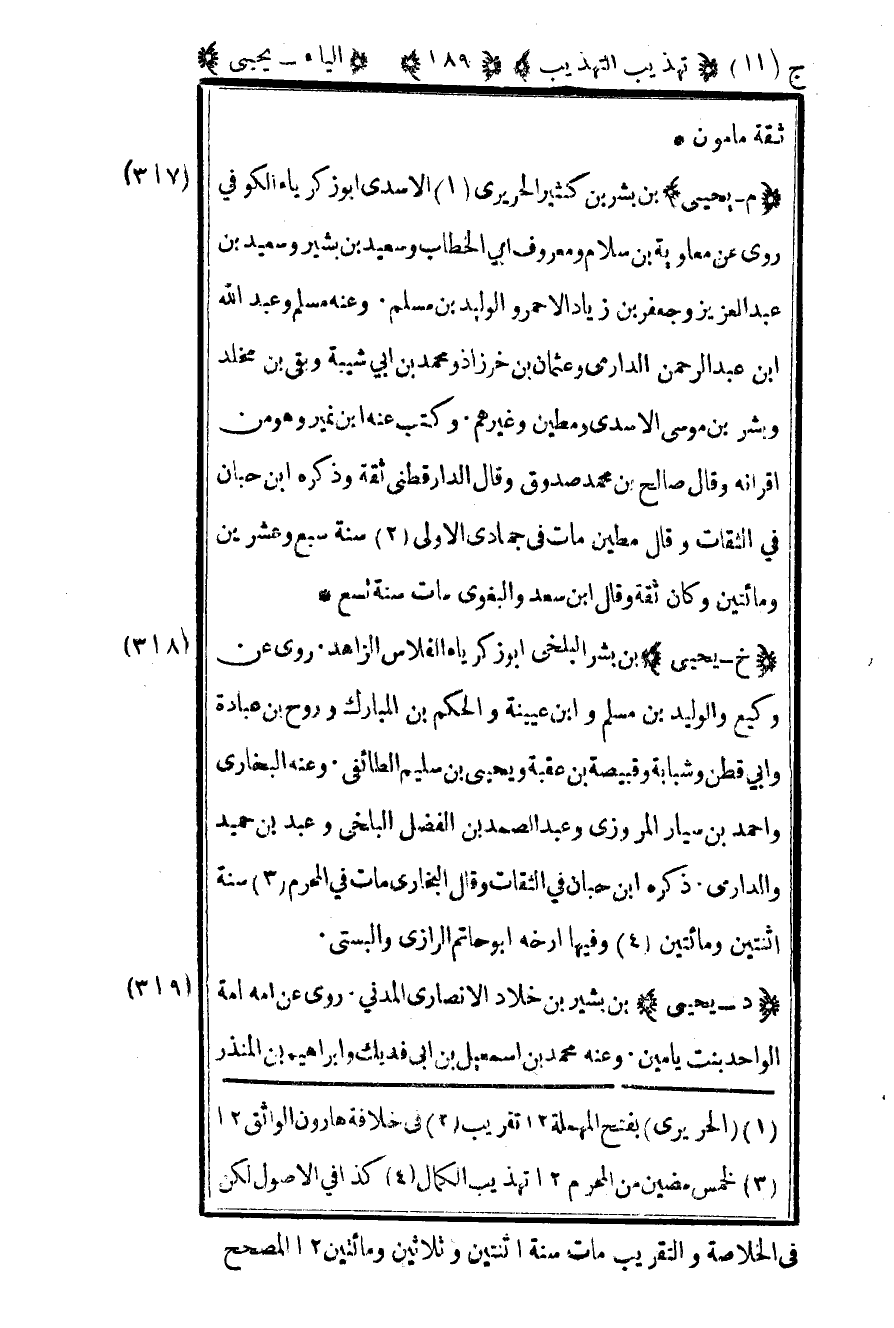 ج (١١) ﴿ تهذيب التهذيب ﴾ ﴿ ١٨٩ ﴾ ﴿ الياء ـ يحيى ﴾
ثقة مامون *
(٣١٧) ﴿ م ـ يحيى ﴾ بن بشر بن كثير الحريرى (١) الاسدى ابو زكرياء الكوفي
روى عن معاوية بن سلام ومعروف ابي الخطاب وسعيد بن بشير وسعيد بن
عبدالعزيز وجعفر بن زياد الاحمر و الوليد بن مسلم · وعنه مسلم وعبد الله
ابن عبدالرحمن الدارمى وعثمان بن خرزاذ ومحمد بن ابي شيبة وبقى بن مخلد
وبشر بن موسى الاسدى ومطين وغيرهم · وكتب عنه ابن نمير وهو من
اقرانه وقال صالح بن محمد صدوق وقال الدارقطنى ثقة وذكره ابن حبان
في الثقات و قال مطين مات فى جمادى الاولى (٢) سنة سبع وعشرين
ومائتين وكان ثقة وقال ابن سعد والبغوى مات سنة تسع *
(٣١٨) ﴿ خ ـ يحيى ﴾ بن بشر البلخى ابو زكرياء الفلاس الزاهد · روى عن
وكيع والوليد بن مسلم و ابن عيينة و الحكم بن المبارك و روح بن عبادة
وابي قطن وشبابة وقبيصة بن عقبة ويحيى بن سليم الطائفى · وعنه البخارى
واحمد بن سيار المروزى وعبدالصمد بن الفضل البلخى و عبد بن حميد
والدارمى · ذكره ابن حبان في الثقات وقال البخارى مات في المحرم (٣) سنة
اثنتين ومائتين (٤) وفيها ارخه ابوحاتم الرازى والبستى ·
(٣١٩) ﴿ د ـ يحيى ﴾ بن بشير بن خلاد الانصارى المدني · روى عن امه امة
الواحد بنت يامين · وعنه محمد بن اسمعيل بن ابى فديك وابراهيم بن المنذر
(١) (الحريرى) بفتح المهملة ١٢ تقريب (٢) فى خلافة هارون الواثق ١٢
(٣) لخمس مضين من المحرم ١٢ تهذيب الكمال (٤) كذا في الاصول لكن
فى الخلاصة و التقريب مات سنة اثنتين و ثلاثين ومائتين ١٢ المصحح